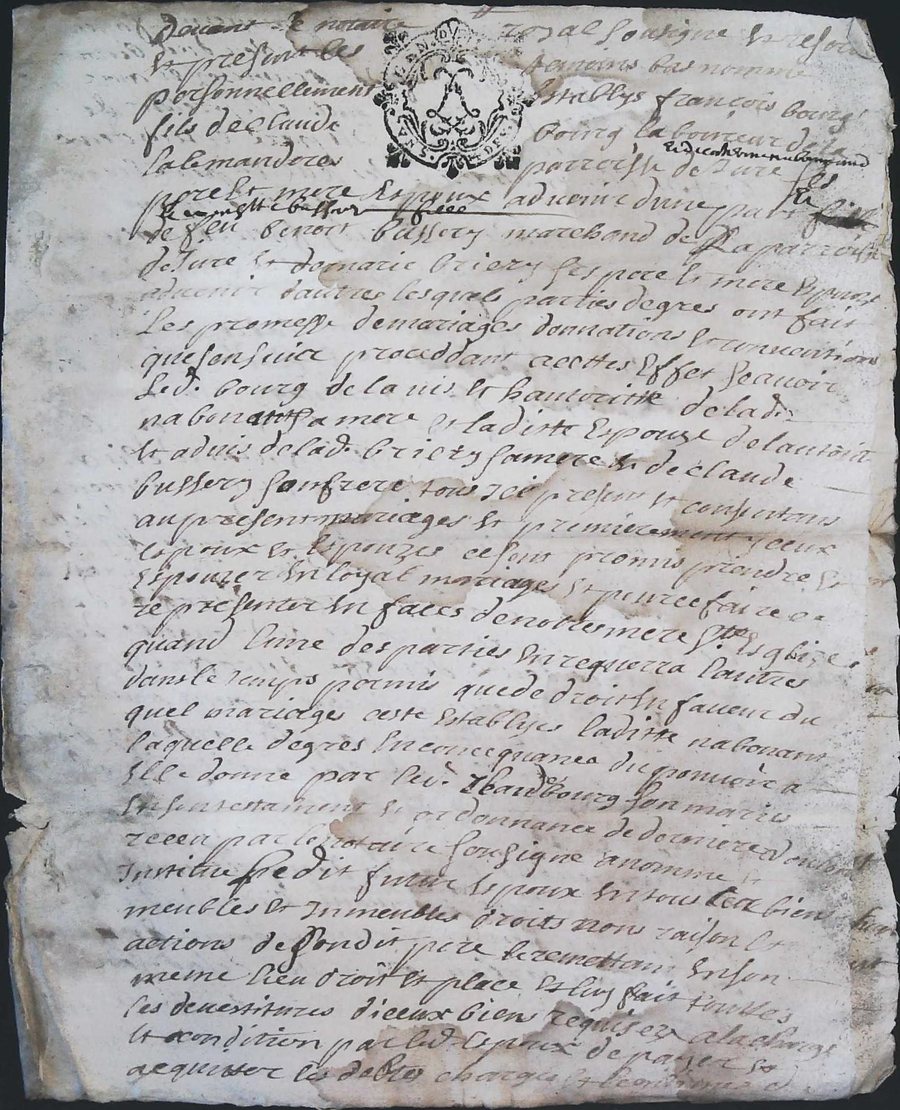 devant le notaire royal sousigne et reser
et present les temoins bas nomme
personnellement establys francois bourg
fils de claude bourg laboureur de la
parroisse de Jure
pere et mere Espoux advenir d'une part
fille
de feu benoit bussery marchand de La parroisse
de Jure et de marie briery ses pere et mere Espouze
advenir d'autres lesquels parties de gres ont fait
Les promesse de mariages donnations et conventions
que sensuict proceddant a cettes Effet scavoir
Led. bourg de lavis et hautoritte de lad.
nabonant sa mere et laditte Espouze de lautorit
et advis de lad. briery sa mere et de claude
bussery son frere tous Icy present et consentans
au present mariages et premierement yceux
Espoux et Espouzes ce sont promis prendre et
Espouzer en loyal mariages et pour ce faire ce
representer en faces de nostre mere Ste Esglize
quand l'une des parties en requerra l'autres
dans le temps permis que de droit En faveur du
quel mariages ceste Establye laditte nabonant
laquelle de gres En consequance du pouvoir a
Elle donne par led. claude bourg son maries
En son testament et ordonnance de derniere
receu par le notaire sousigne a nomme et
Institue ledit futur Espoux En tous les bien
meubles et Inmeubles droits noms raison et
actions de sondit pere le remettant En son
meme lieu droit et place et luy fait touttes
les devestitures d'iceux bien requises a la charge
et condition par led. Espoux de payer et
acquitter les debtes charges et